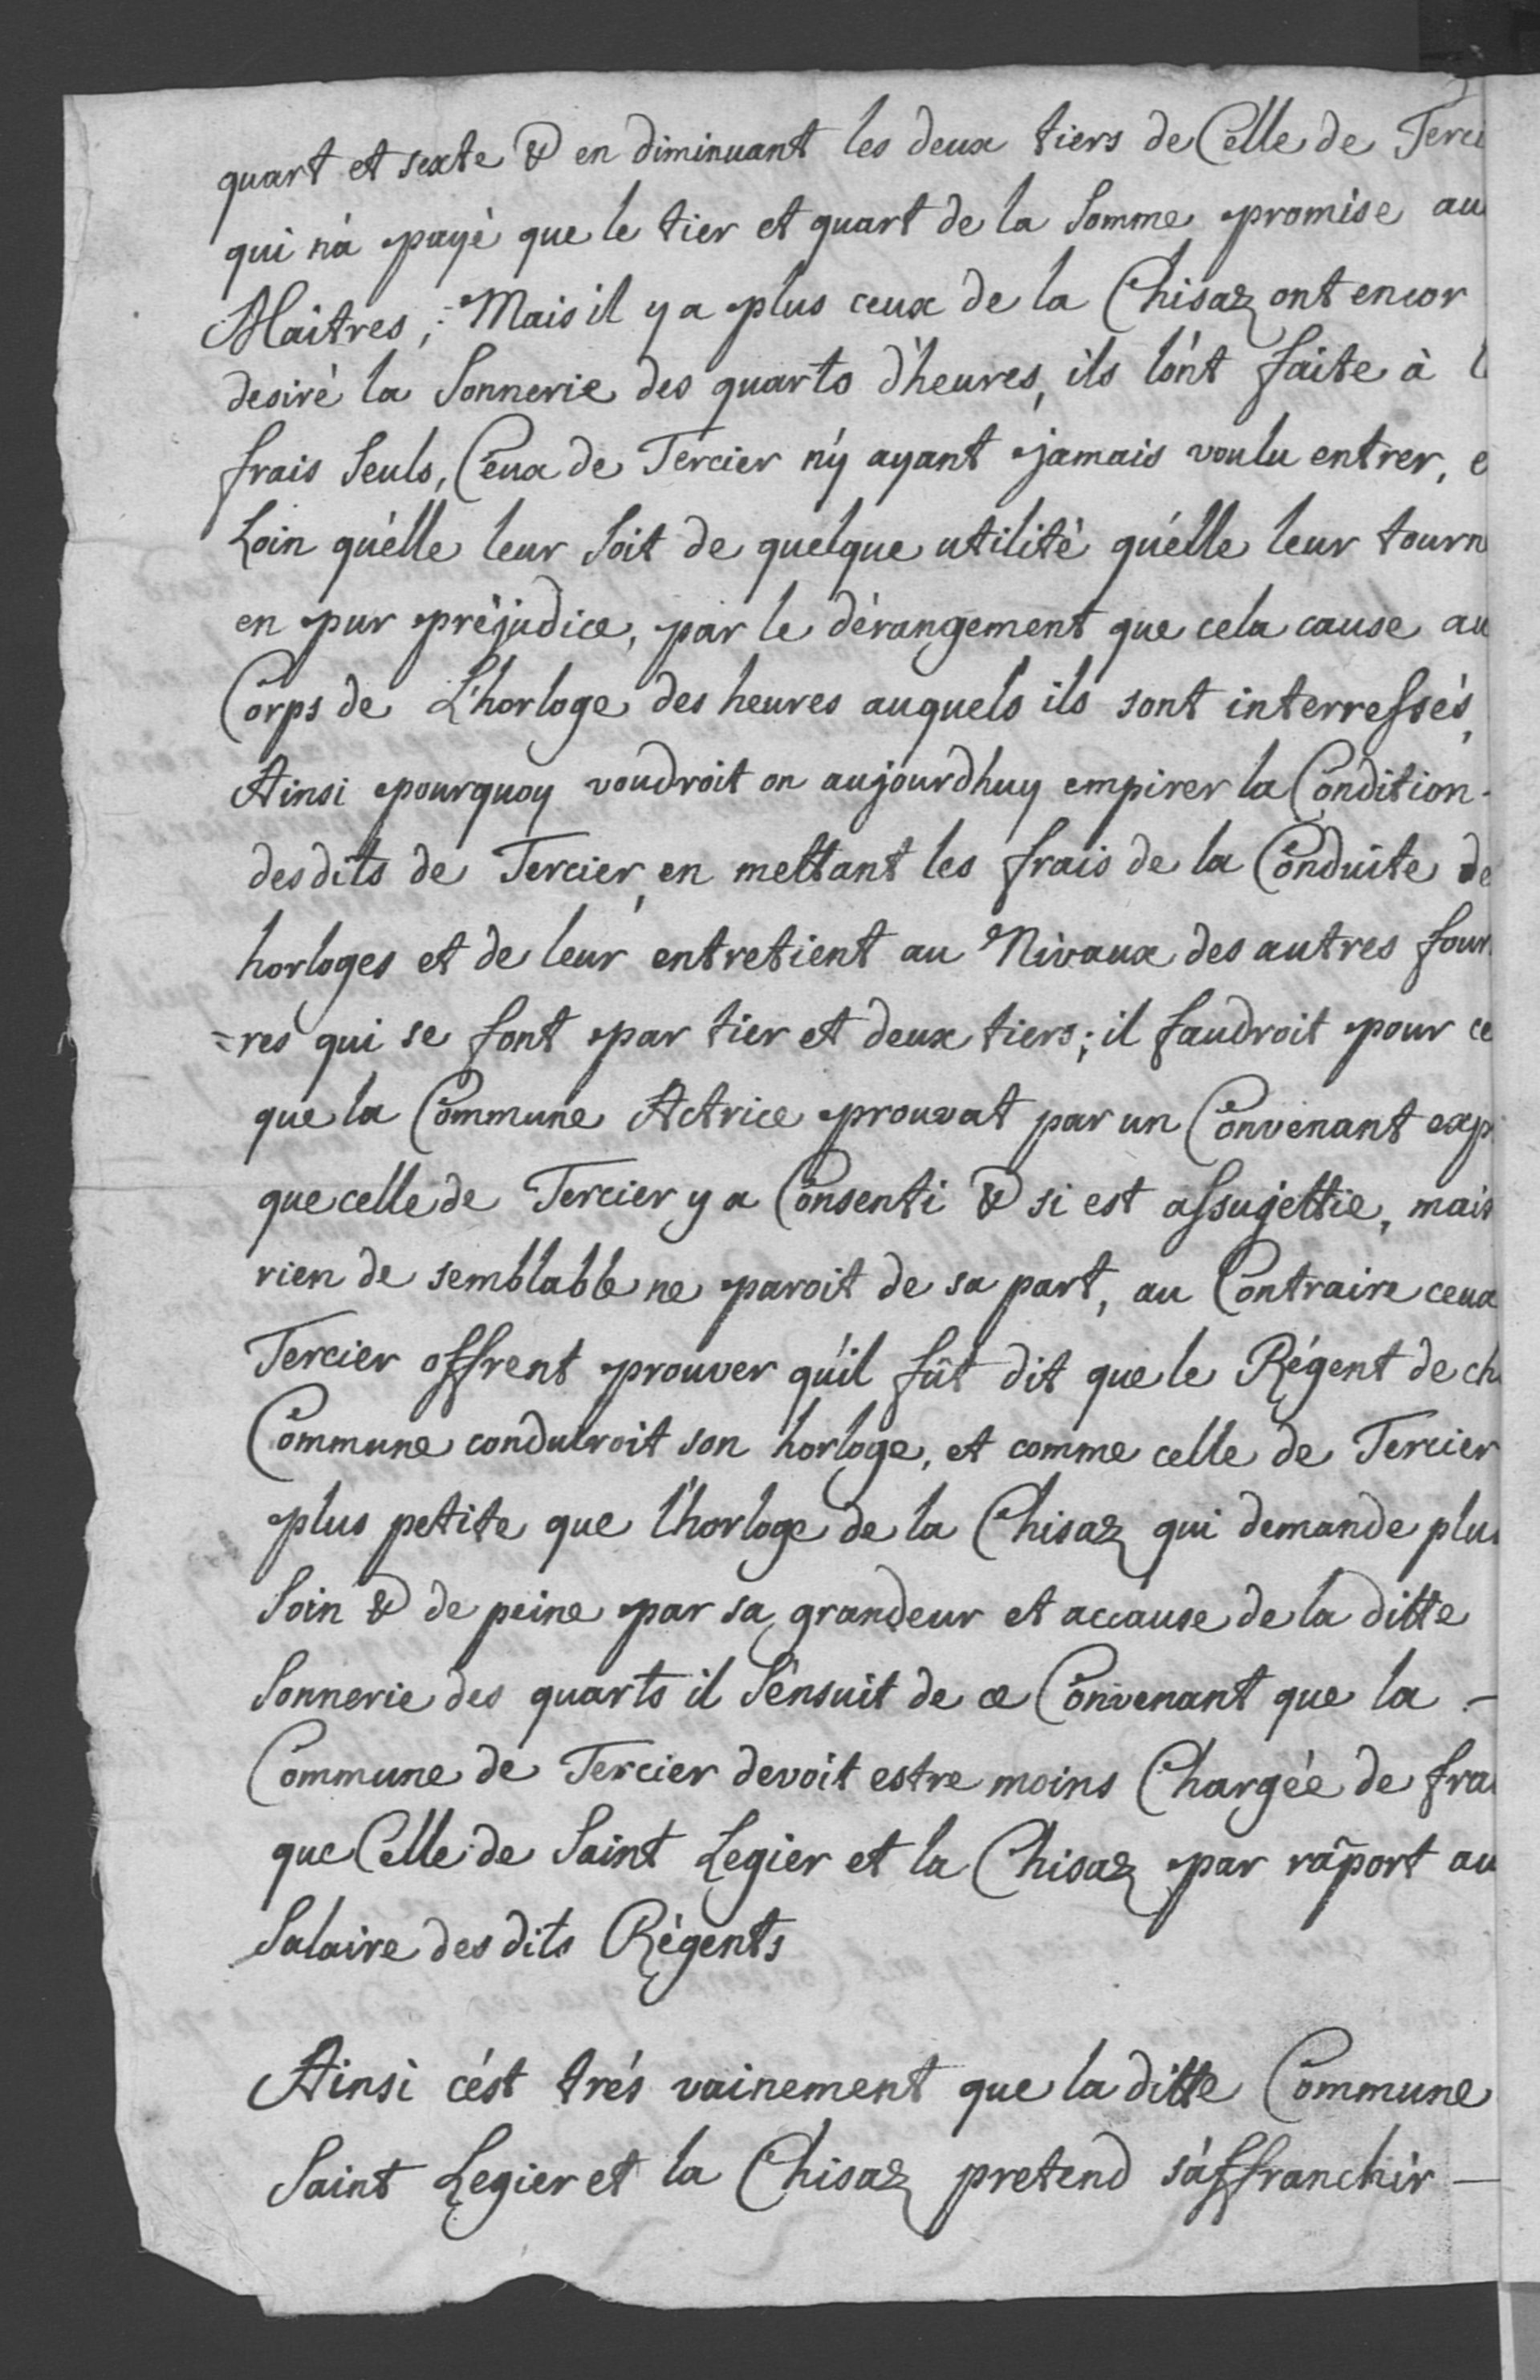 quart et sexte & en diminuant les deux tiers de Celle de Terci
qui n'à payé que le tier et quart de la Somme promise au
Maitres; Mais il y a plus ceux de la Chisaz ont encor
desiré la Sonnerie des quarts d'heures, ils l'ont faite à l
frais Seuls, Ceux de Tercier n'y ayant jamais voulu entrer, e
Loin qu'elle leur Soit de quelque utilité qu'elle leur tourn
en pur préjudice, par le dérangement que cela cause au
Corps de L'horloge des heures auquels ils sont interressés,
Ainsi pourquoy voudroit on aujourdhuy empirer la Condition
desdits de Tercier, en mettant les frais de la Conduite de
horloges et de leur entretient au Nivaux des autres four
=res qui se font par tier et deux tiers; il faudroit pour ce
que la Commune Actrice prouvat par un Convenant exp
que celle de Tercier y a Consenti & si est assujettie, mais
rien de semblable ne paroit de sa part, au Contraire ceux
Tercier offrent prouver qu'il fût dit que le Régent de ch
Commune conduiroit son horloge, et comme celle de Tercier
plus petite que l'horloge de la Chisaz qui demande plus
Soin & de peine par sa grandeur et accause de la ditte
Sonnerie des quarts il S'ensuit de ce Convenant que la -
Commune de Tercier devoit estre moins Chargée de fra
que Celle de Saint Legier et la Chisaz par rãport au
Salaire des dits Régents
Ainsi c'est trés vainement que la ditte Commune
Saint Legier et la Chisaz pretend s'affranchir -